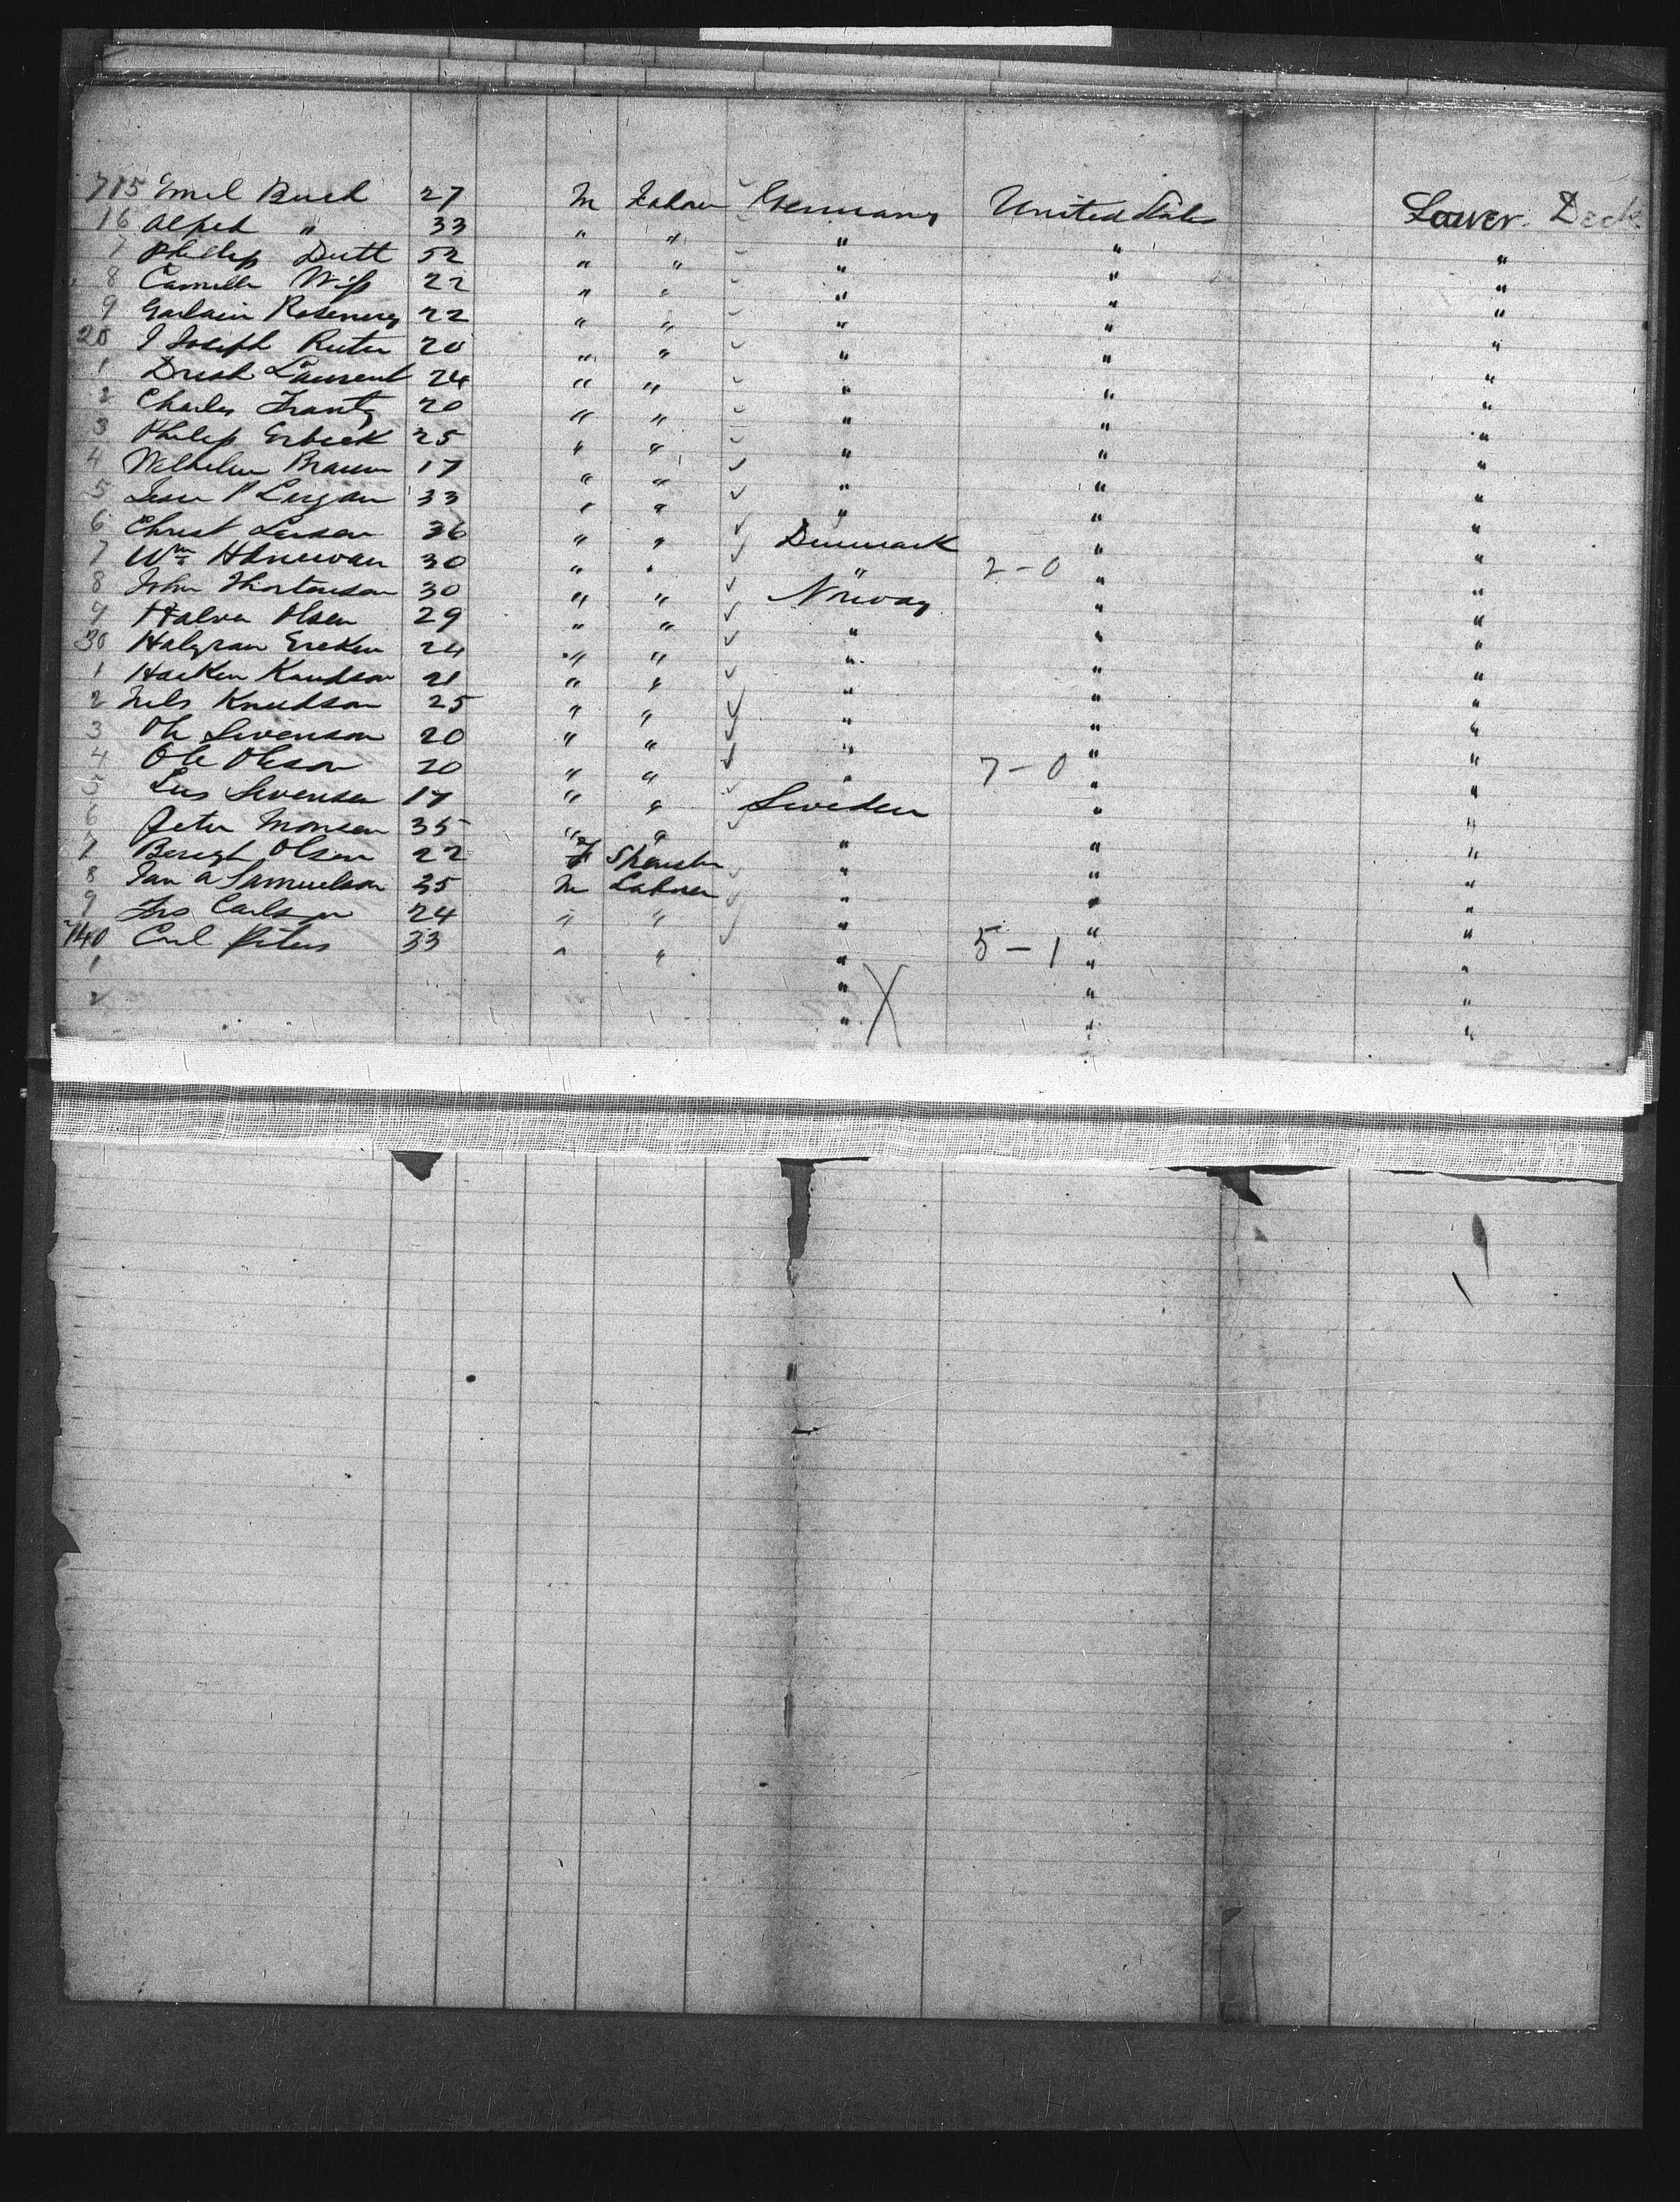 715 Emil Buch 27 M Labour Germany United States Lower Deck
16 Alfred " 33 " " " " "
7 Phillip Dutt 52 " " " " "
8 Camille Wiss 22 " " " " "
9 Rosenerg 22 " " " " "
20 J Joseph Ruter 20 " " " " "
1 Laurent 24 " " " " "
2 Charles Frantz 20 " " " " "
3 Philip Erbeck 25 " " " " "
4 Wilhelm Braun 17 " " " " "
5 P 33 " " " " "
6 Christ Larsen 36 " " Denmark " "
7 Wm 30 " " " 2-0 " "
8 John Thortenson 30 " " Norway " "
9 Halvor Olsen 29 " " " " "
30 Ericken 24 " " " " "
1 Haaken Knudson 21 " " " " "
2 Nels Knudson 25 " " " " "
3 Ole Svenson 20 " " " " "
4 Ole Oleson 20 " " " 7-0 " "
5 Lars Svensen 17 " " Sweden " "
6 Peter Monsen 35 " " " " "
7 Olsen 22 F Spinster " " "
8 Jan A Samuelson 35 M Labour " " "
9 Jno Carlson 24 " " " " "
740 Carl Peters 33 " " " 5-1 " "
1 " " "
2 " X " "